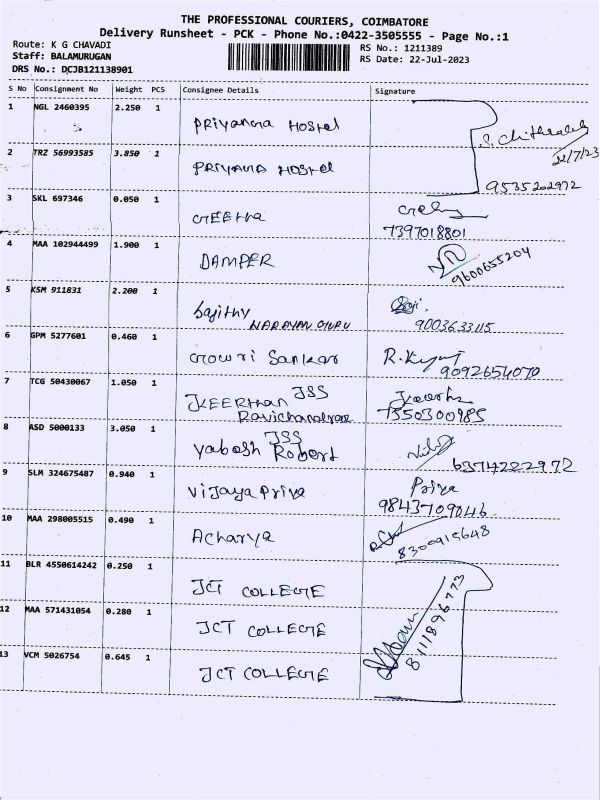 THE PROFESSIONAL COURIERS, COIMBATORE
Delivery Runsheet - PCK - Phone No.:0422-3505555 - Page No.:1
Route: K G CHAVADI
RS No.: 1211389
Staff: BALAMURUGAN
RS Date: 22-Jul-2023
DRS No.: DCJB121138901
S No Consignment No Weight PCS Consignee Details Signature
1 NGL 2460395 2.250 1 Priyanga Hostel
S. Chithralek
22/7/23
2 TRZ 56993585 3.850 1 PRIYANGA HOSTEL
9535202972
3 SKL 697346 0.050 1 GEETHA
7397018801
4 MAA 102944499 1.900 1 DAMPER
9600655204
5 KSM 911831 2.200 1 Sajithy
NARAYAN GURU 9003633115
6 GPM 5277601 0.460 1 Gowri Sankar
9092654070
7 TCG 50430067 1.050 1 JKEERTHAN JSS
Ravichandran 7550300985
8 ASD 5000133 3.050 1 JSS
Yabesh Robert
6374222972
9 SLM 324675487 0.940 1 Vijaya Priya Priya
9843709046
10 MAA 298005515 0.490 1 Acharya
8300915648
11 BLR 4550614242 0.250 1 JCT COLLEGE
12 MAA 571431054 0.280 1 JCT COLLEGE
8111896773
13 VCM 5026754 0.645 1 JCT COLLEGE